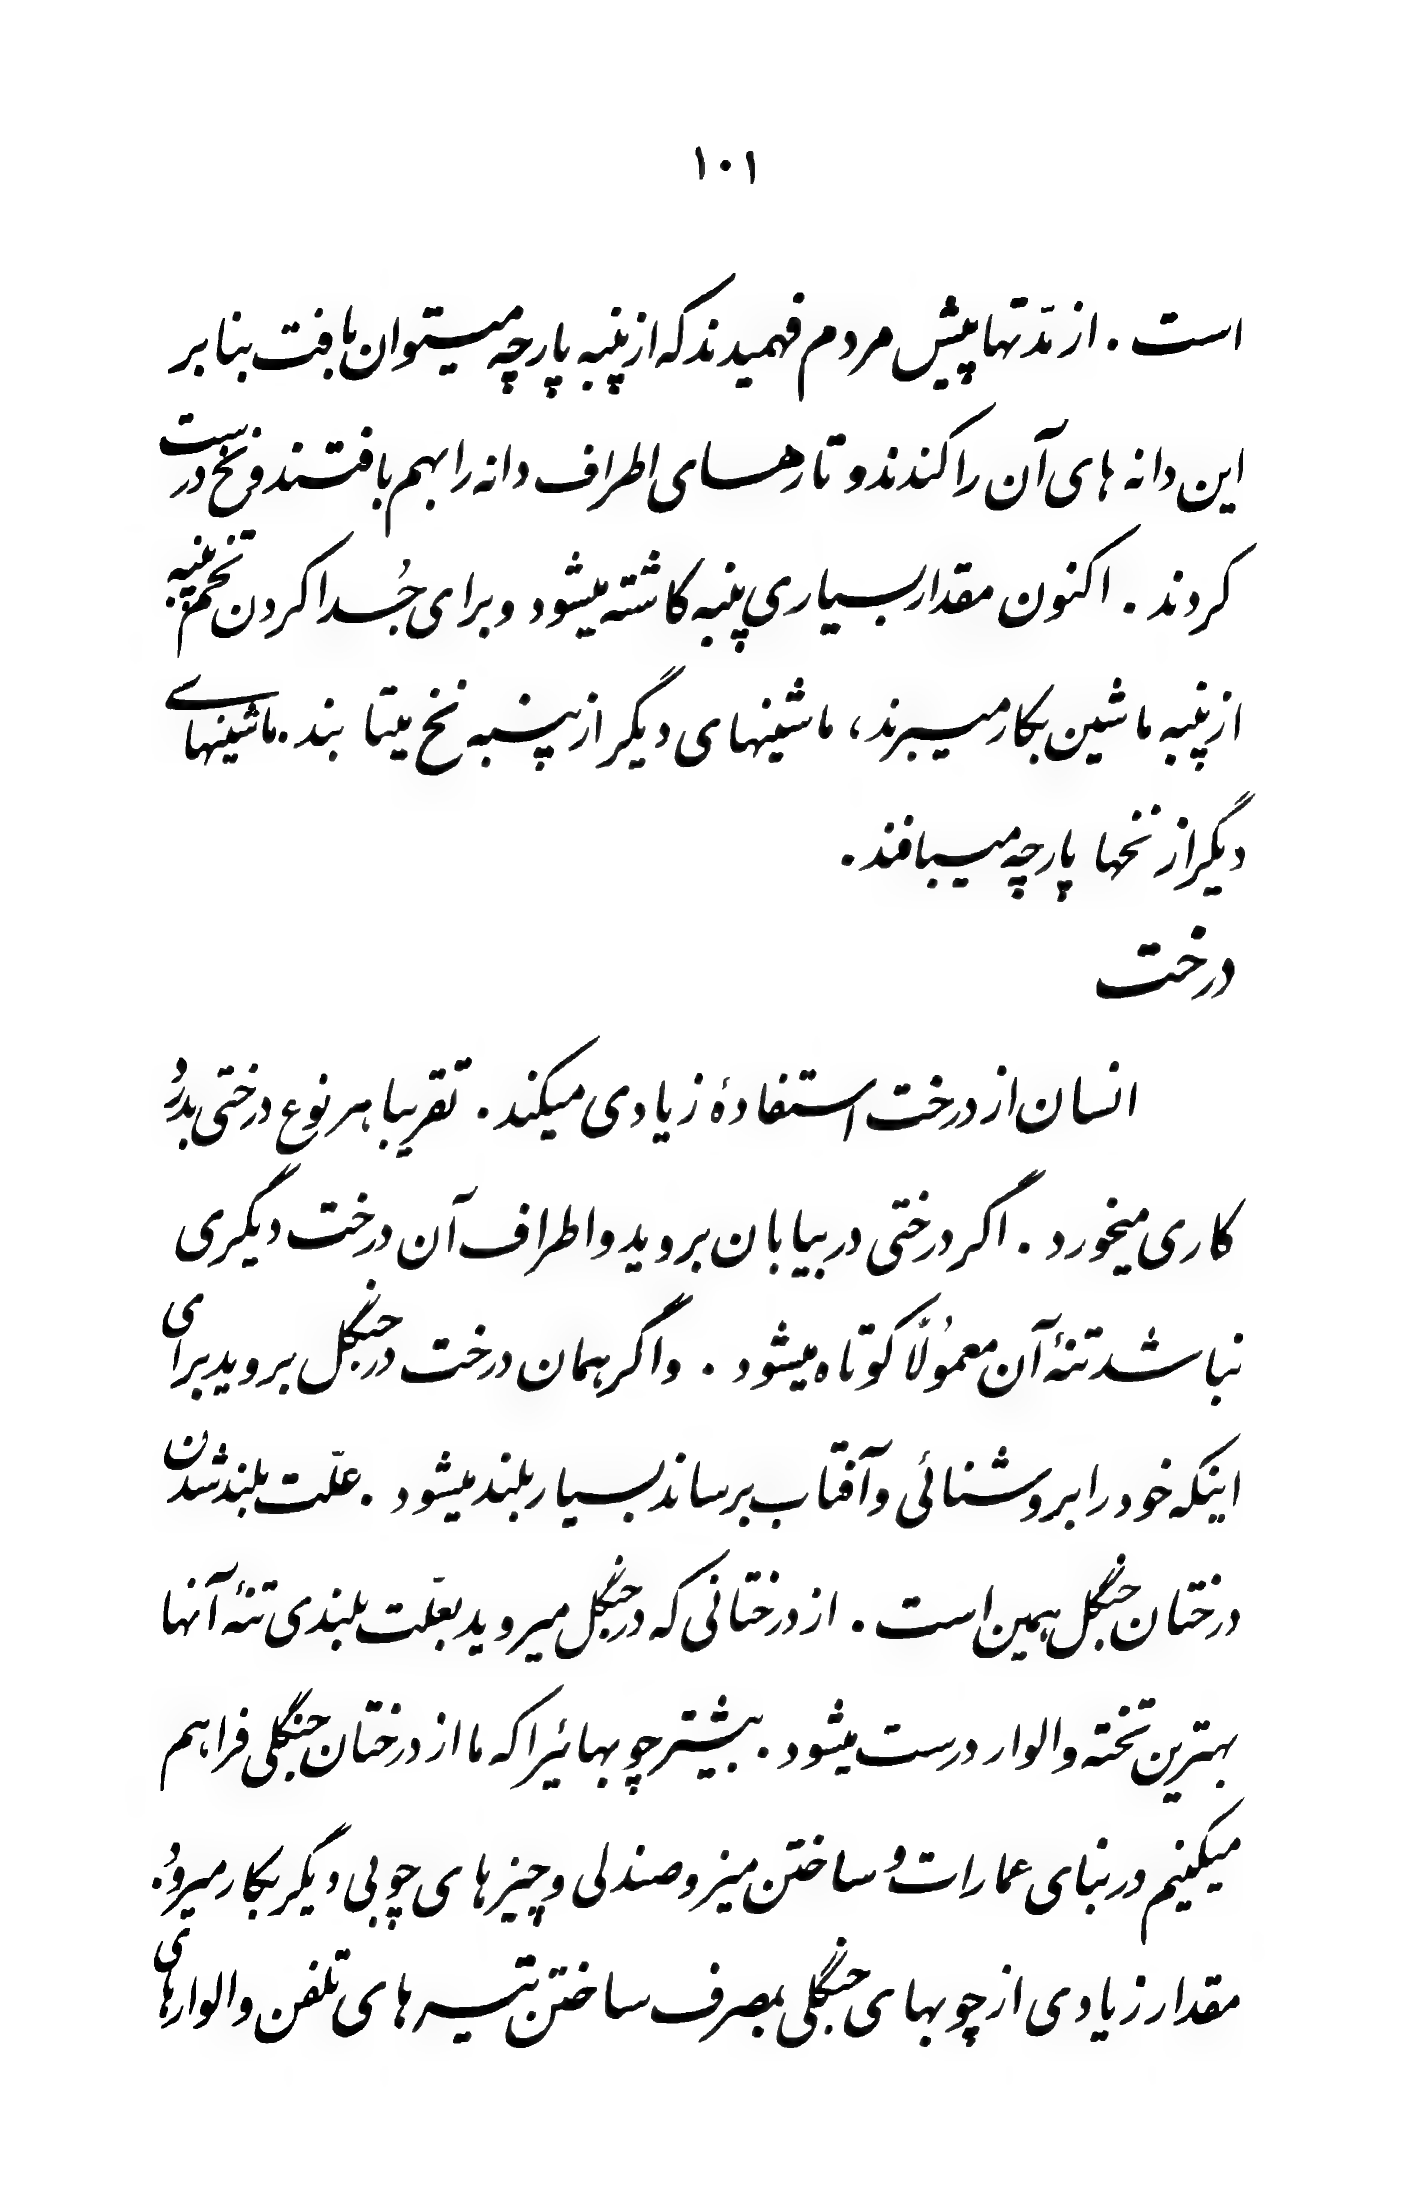 ۱۰۱
است . از مدّتها پیش مردم فهمیدند که از پنبه پارچه میتوان بافت بنابر
این دانه های آن را کندند و تارهای اطراف دانه را بهم بافتند و نخ درست
کردند . اکنون مقدار بسیاری پنبه کاشته میشود و برای جُدا کردن تخم پنبه
از پنبه ماشین بکار میبرند، ماشینهای دیگر از پنبه نخ میتابند . ماشینهای
دیگر از نخها پارچه میبافند .
درخت
انسان از درخت استفادهٔ زیادی میکند . تقریبا هر نوع درختی بدرد
کاری میخورد . اگر درختی در بیابان بروید و اطراف آن درخت دیگری
نباشد تنهٔ آن معمُولاً کوتاه میشود . و اگر همان درخت در جنگل بروید برای
اینکه خود را بروشنائی و آفتاب برساند بسیار بلند میشود . علّت بلند شدن
درختان جنگل همین است . از درختانی که در جنگل میروید بعلّت بلندی تنهٔ آنها
بهترین تخته و الوار درست میشود . بیشتر چوبهائیرا که ما از درختان جنگلی فراهم
میکنیم در بنای عمارات و ساختن میز و صندلی و چیزهای چوبی دیگر بکار میرود .
مقدار زیادی از چوبهای جنگلی بمصرف ساختن تیرهای تلفن و الوارهای